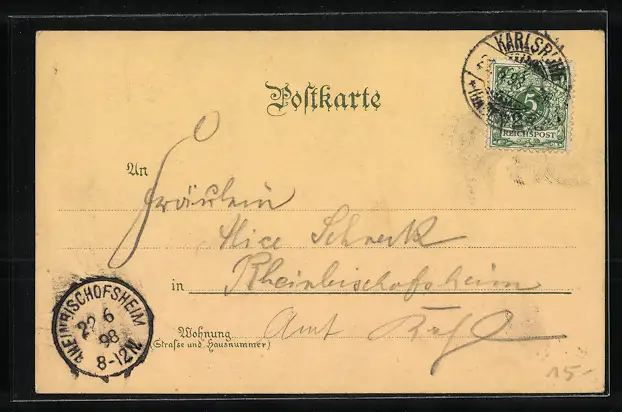 KARLSRUHE
98
5
REICHSPOST
Postkarte
An
Fräulein
Alice Schreck
in Rheinbischofsheim
Wohnung
(Straße und Hausnummer)
Amt Kehl
RHEINBISCHOFSHEIM
22 6
98
8-12N
15-